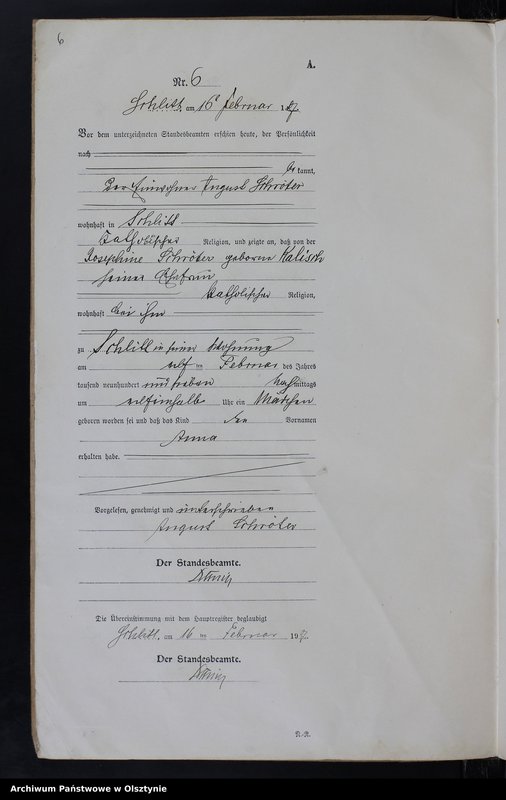 6
A.
Nr. 6
Schlitt, am 16t Februar 1907.
Vor dem unterzeichneten Standesbeamten erschien heute, der Persönlichkeit
nach
be kannt,
der Einwohner August Schröter
wohnhaft in Schlitt
katholischer Religion, und zeigte an, daß von der
Josephine Schröter geborene Kalisch
seiner Ehefrau
katholischer Religion,
wohnhaft bei ihm
zu Schlitt in seiner Wohnung
am elf ten Februar des Jahres
tausend neunhundert und sieben Nachmittags
um elfeinhalb Uhr ein Mädchen
geboren worden sei und daß das Kind den Vornamen
Anna
erhalten habe.
Vorgelesen, genehmigt und unterschrieben
August Schröter
Der Standesbeamte.
Die Übereinstimmung mit dem Hauptregister beglaubigt
Schlitt, am 16 ten Februar 1907.
Der Standesbeamte.
Archiwum Państwowe w Olsztynie